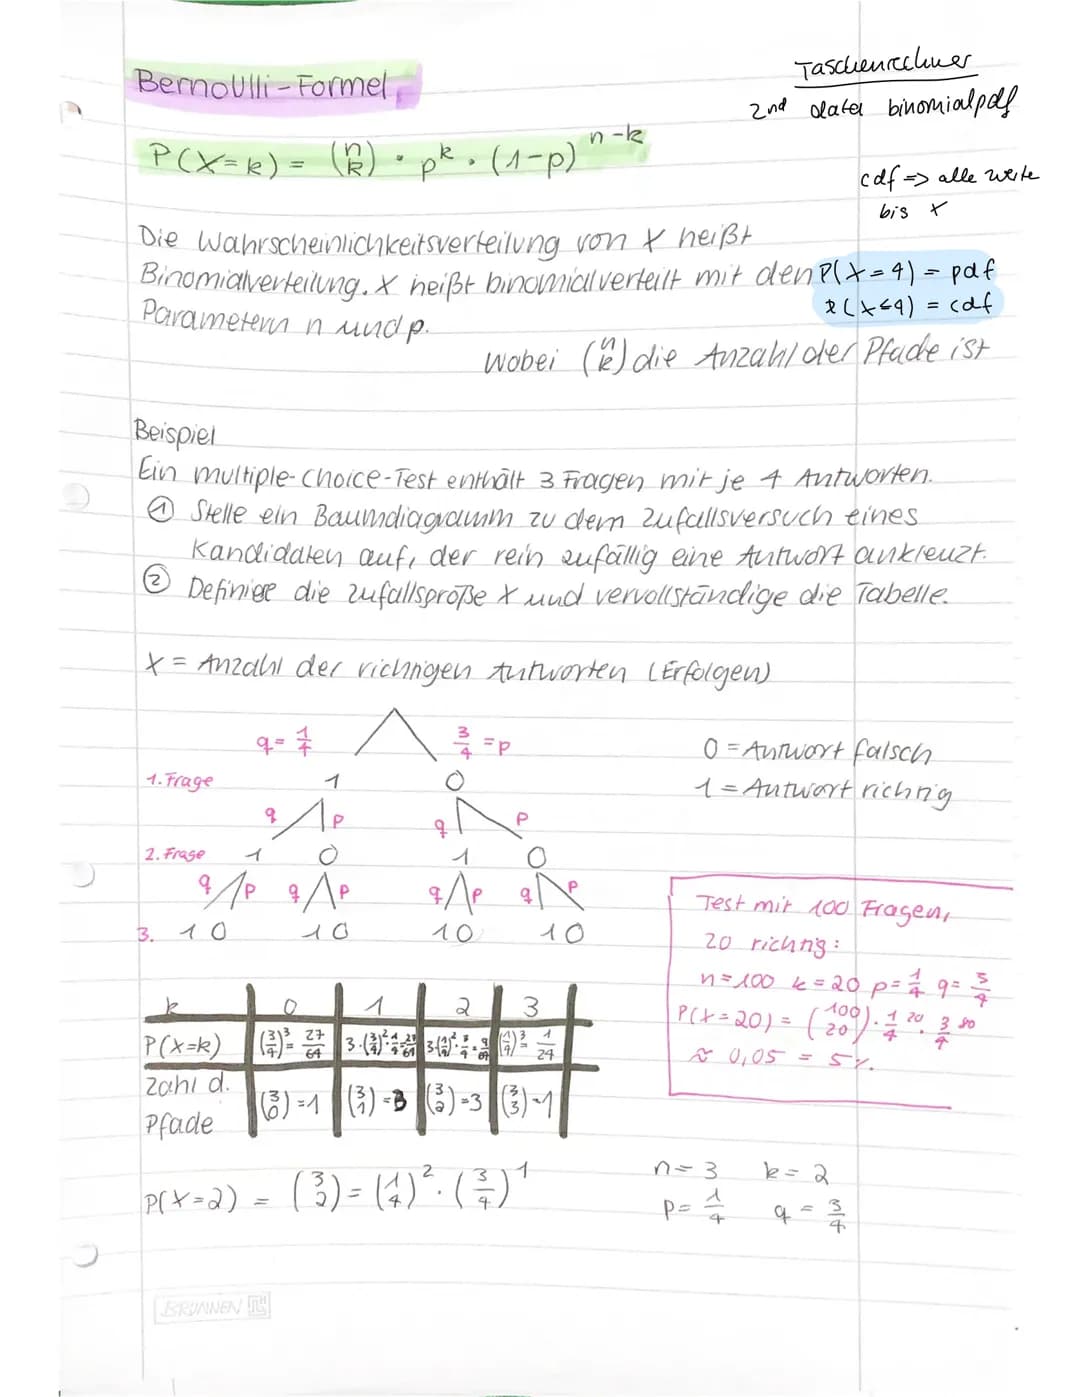 Bernoulli-Formel
Taschenrechner
2nd data binomialpdf
P(X=k) = (n k) · p^k · (1-p)^n-k
cdf => alle Werte
bis x
Die Wahrscheinlichkeitsverteilung von X heißt
Binomialverteilung. X heißt binomialverteilt mit den
Parametern n und p.
P(X=4) = pdf
P(X≤4) = cdf
Wobei (n k) die Anzahl der Pfade ist
Beispiel
Ein multiple-choice-Test enthält 3 Fragen mit je 4 Antworten.
① Stelle ein Baumdiagramm zu dem Zufallsversuch eines
Kandidaten auf, der rein zufällig eine Antwort ankreuzt.
② Definiere die Zufallsgröße X und vervollständige die Tabelle.
X = Anzahl der richtigen Antworten (Erfolgen)
q = 1/4 3/4 = p
0 = Antwort falsch
1. Frage 1 0
1 = Antwort richtig
q p q p
2. Frage 1 0 1 0
q p q p q p q p
3. 1 0 1 0 1 0 1 0
Test mit 100 Fragen,
20 richtig:
n=100 k=20 p=1/4 q=3/4
P(X=20) = (100 20) · 1/4^20 · 3/4^80
≈ 0,05 = 5%
k 0 1 2 3
P(X=k) (3/4)^3 = 27/64 3·(3/4)^2·1/4 = 27/64 3·(1/4)^2·3/4 = 9/64 (1/4)^3 = 1/24
Zahl d. Pfade (3 0) = 1 (3 1) = 3 (3 2) = 3 (3 3) = 1
P(X=2) = (3 2) = (1/4)^2 · (3/4)^1
n = 3 k = 2
p = 1/4 q = 3/4
BRUNNEN